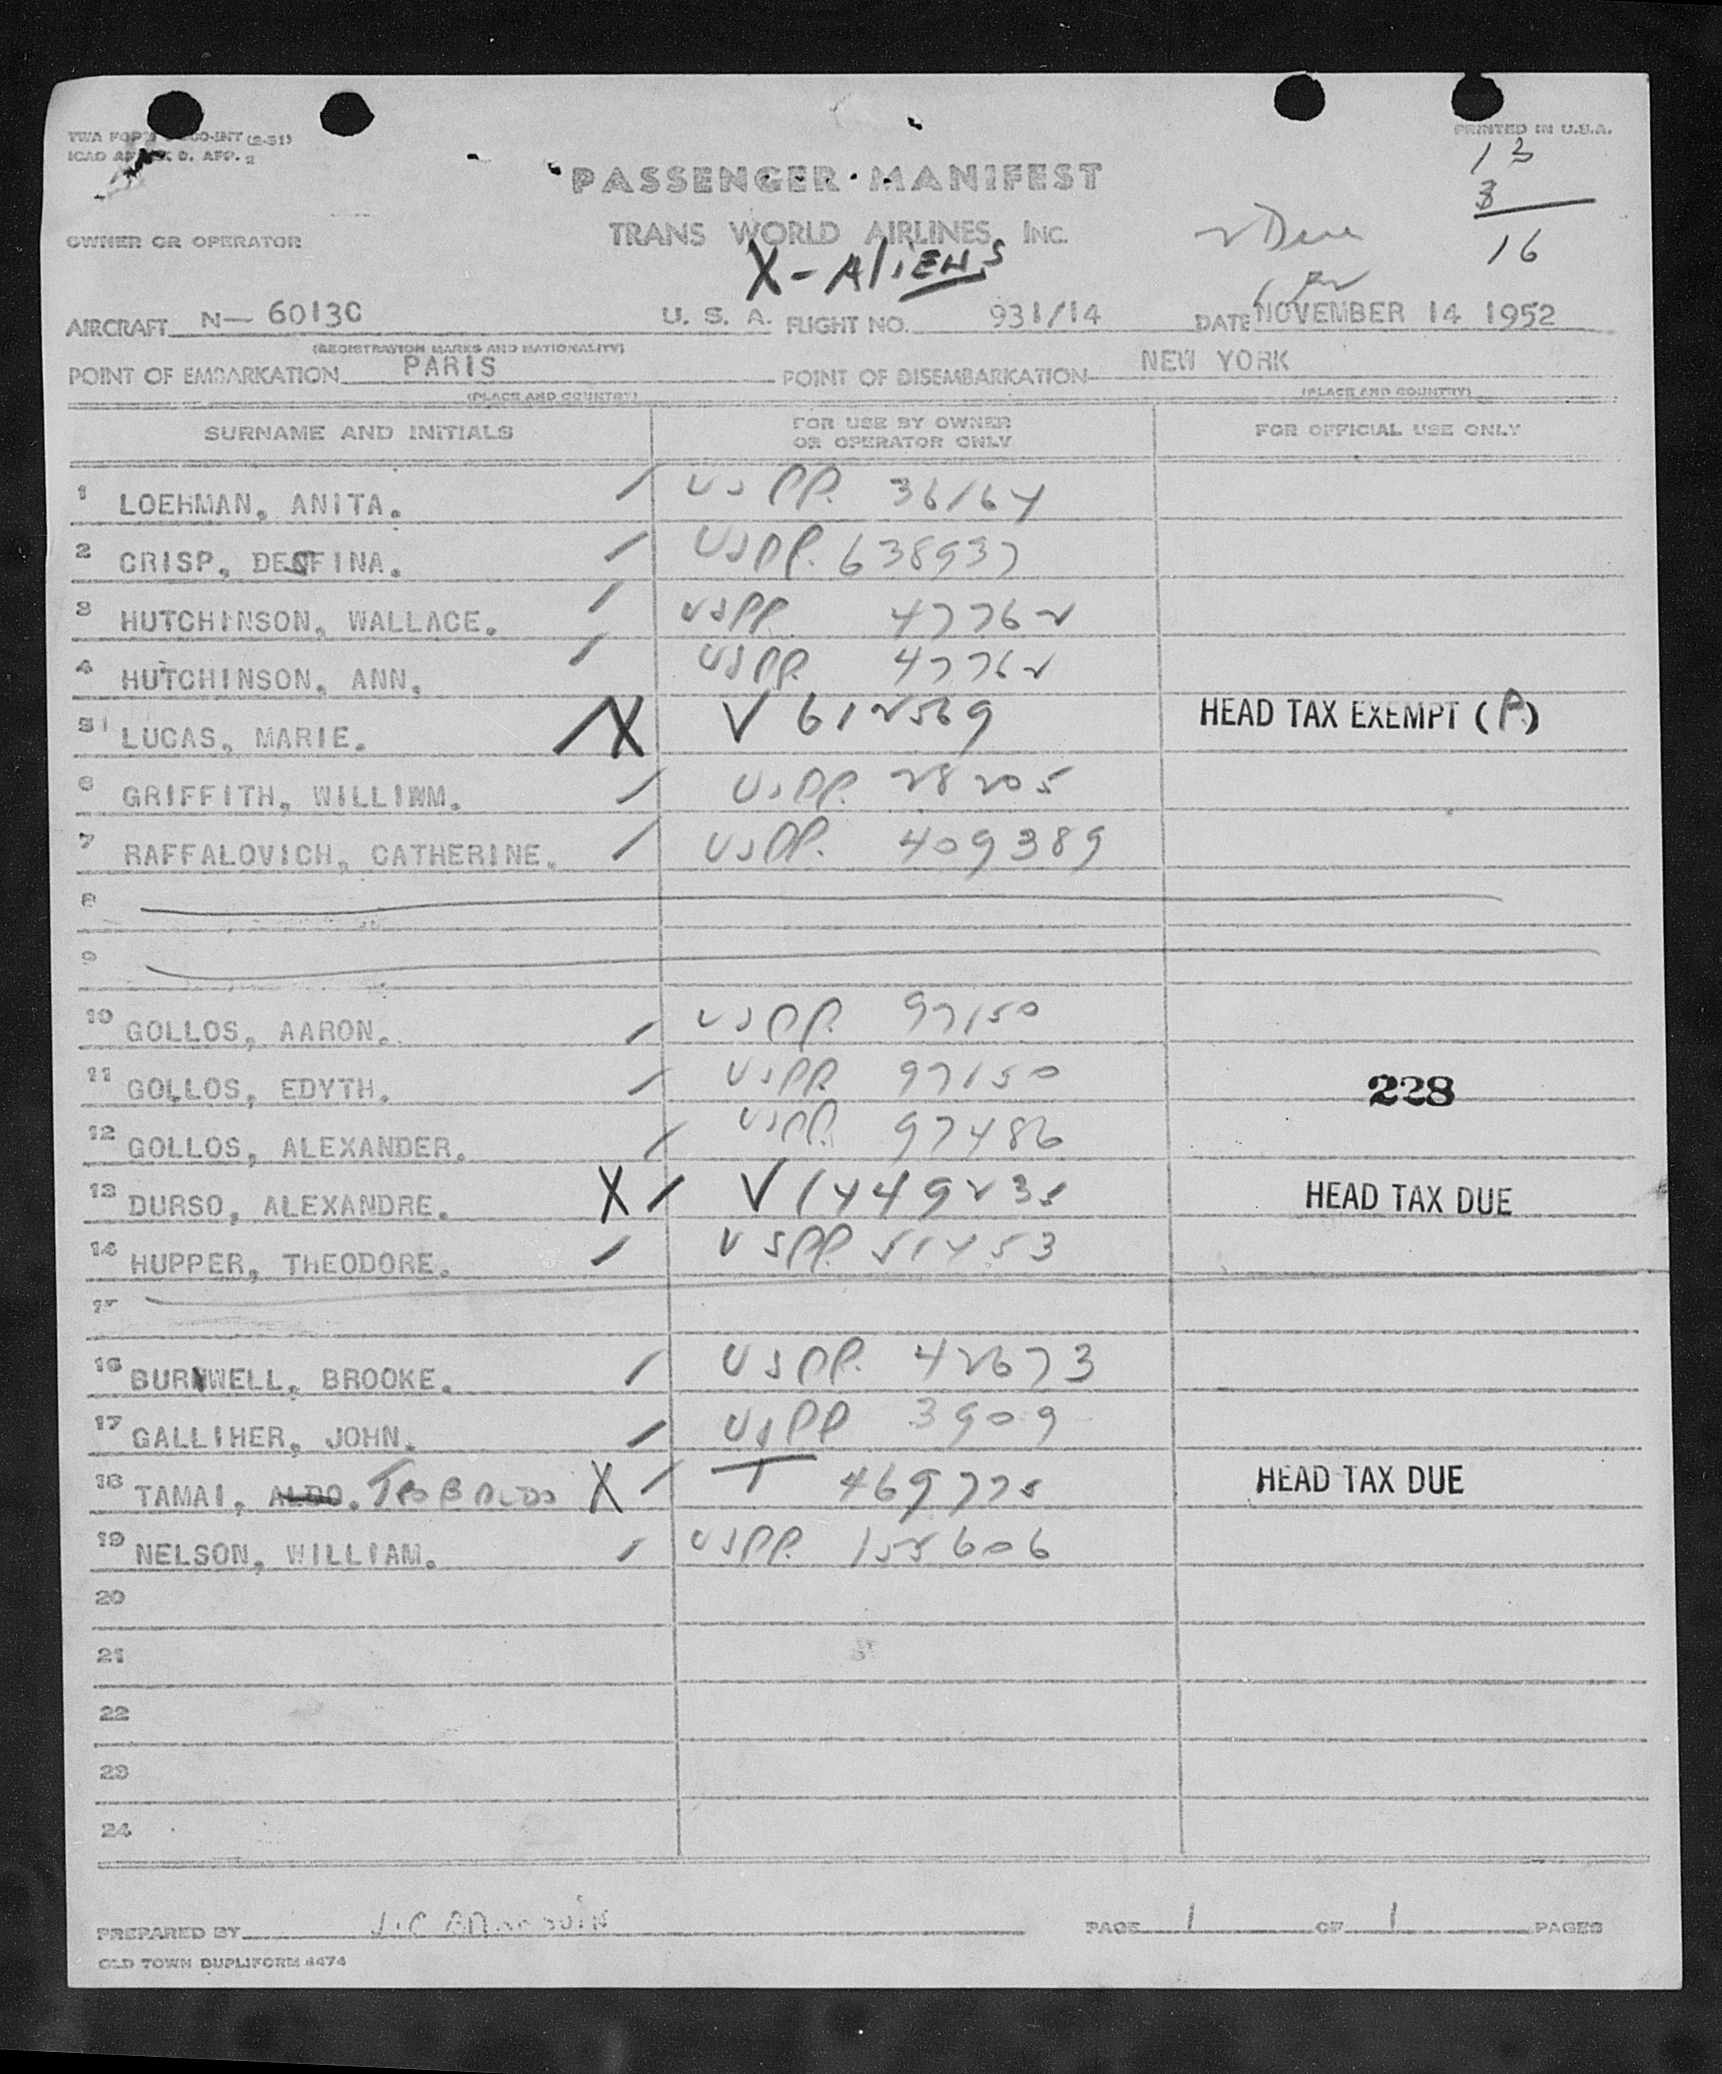 PRINTED IN U.S.A.
13
3
16
PASSENGER MANIFEST
OWNER OR OPERATOR TRANS WORLD AIRLINES, INC.
X-ALIENS
AIRCRAFT N-6013C U. S. A. FLIGHT NO. 931/14 DATE NOVEMBER 14 1952
(REGISTRATION MARKS AND NATIONALITY)
POINT OF EMBARKATION PARIS POINT OF DISEMBARKATION NEW YORK
(PLACE AND COUNTRY) (PLACE AND COUNTRY)
SURNAME AND INITIALS FOR USE BY OWNER OR OPERATOR ONLY FOR OFFICIAL USE ONLY
1 LOEHMAN, ANITA. / USPP. 36164
2 CRISP, DESFINA. / USPP. 638937
3 HUTCHINSON, WALLACE. / USPP 47762
4 HUTCHINSON, ANN. / USPP. 47762
5 LUCAS, MARIE. / X V 612569 HEAD TAX EXEMPT (P.)
6 GRIFFITH, WILLIAM. / USPP. 28205
7 RAFFALOVICH, CATHERINE. / USPP. 409389
8
9
10 GOLLOS, AARON. / USPP. 97150
11 GOLLOS, EDYTH. / USPP. 97150
228
12 GOLLOS, ALEXANDER. / USPP. 97486
13 DURSO, ALEXANDRE. X / V 1449231 HEAD TAX DUE
14 HUPPER, THEODORE. / USPP. 51453
15
16 BURNWELL, BROOKE. / USPP. 42673
17 GALLIHER, JOHN. / USPP 3909
18 TAMAI, ALDO. TEOBALDO X / T 469775 HEAD TAX DUE
19 NELSON, WILLIAM. / USPP. 155606
20
21
22
23
24
PREPARED BY PAGE 1 OF 1 PAGES
OLD TOWN DUPLIFORM 4474